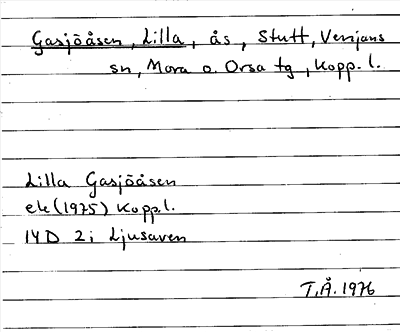 Gasjöåsen, Lilla, ås, Stutt, Venjans
sn, Mora o. Orsa tg, Kopp. l.
Lilla Gasjöåsen
ek (1975) Kopp. l.
14D 2i Ljusaven
T.Å. 1976